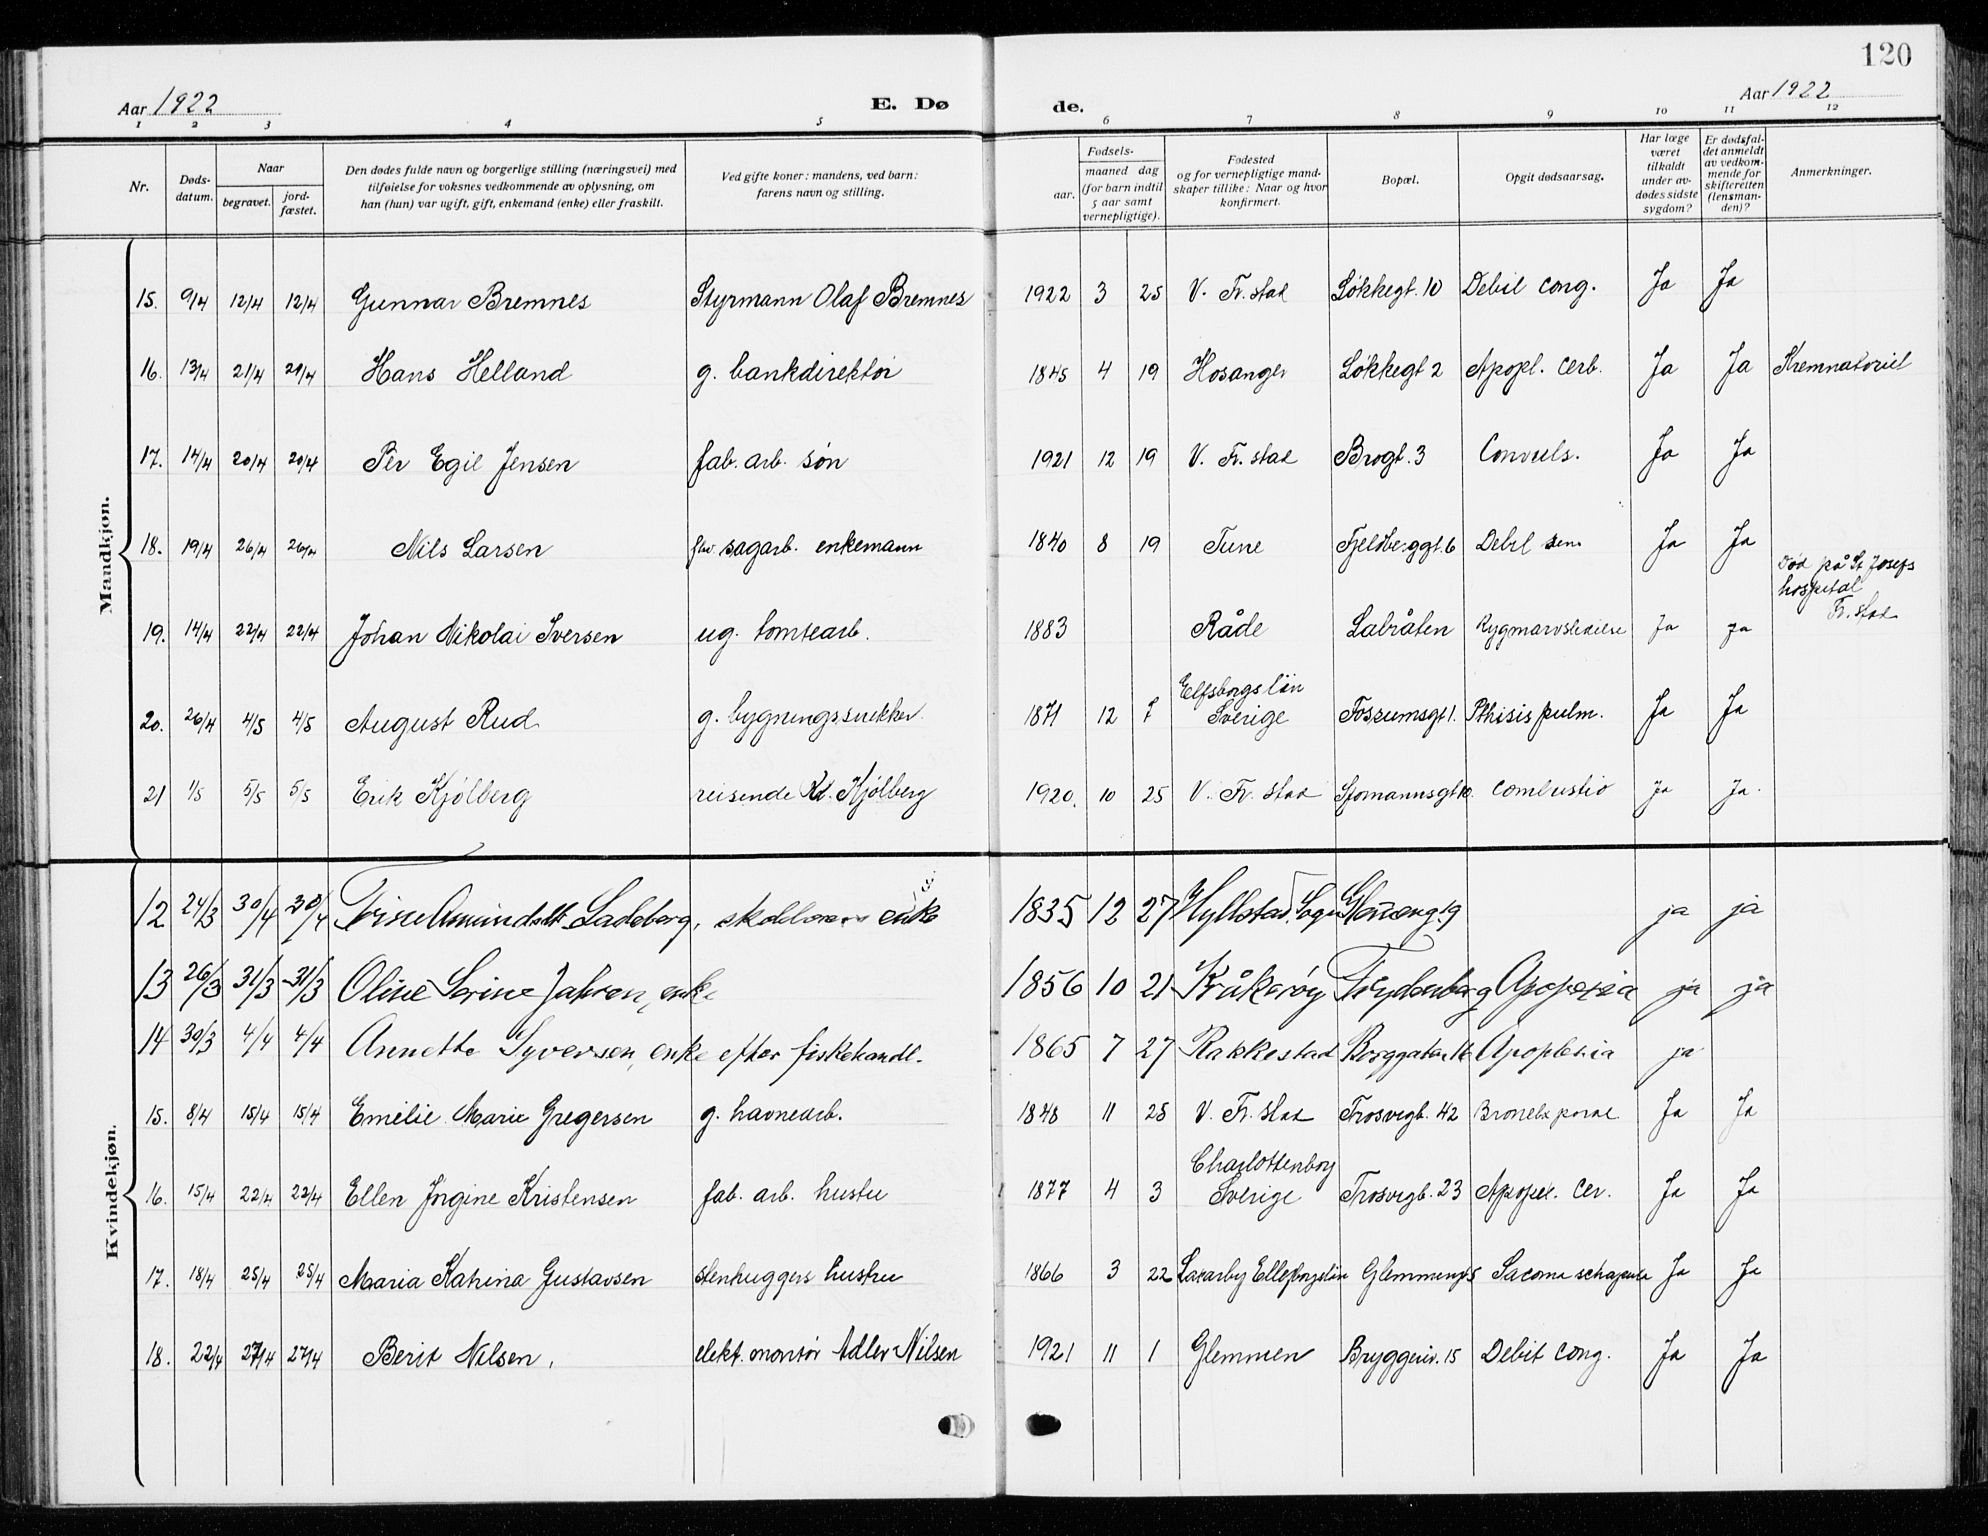 120
Aar 1922 E. Dø de. Aar 1922
1 2 3 4 5 6 7 8 9 10 11 12
Nr. Døds-datum. Naar begravet. jord-fæstet. Den dødes fulde navn og borgerlige stilling (næringsvei) med tilføielse for voksnes vedkommende av oplysning, om han (hun) var ugift, gift, enkemand (enke) eller fraskilt. Ved gifte koner: mandens, ved barn: farens navn og stilling. Fødsels- aar. maaned dag (for barn indtil 5 aar samt vernepligtige). Fødested og for vernepligtige mand-skaper tillike: Naar og hvor konfirmert. Bopæl. Opgit dødsaarsag. Har læge været tilkaldt under av-dødes sidste sygdom? Er dødsfal-det anmeldt av vedkom-mende for skifteretten (lensman-den)? Anmerkninger.
Mandkjøn.
15. 9/4 12/4 12/4 Gunnar Bremnes Styrmann Olaf Bremnes 1922 3 25 V. Fr.stad Løkkegt. 10 Debil cong. Ja Ja
16. 13/4 21/4 21/4 Hans Helland g. bankdirektør 1845 4 19 Hosanger Løkkegt 2 Apopl. cerb. Ja Ja Kremnatoriet
17. 14/4 20/4 20/4 Per Egil Jensen fab. arb. søn 1921 12 19 V. Fr. stad Brogt. 3 Convuls. Ja Ja
18. 19/4 26/4 26/4 Nils Larsen fhv. sagarb. enkemann 1840 8 19 Tune Fjeldberggt. 6 Debil sen. Ja Ja
19. 14/4 22/4 22/4 Johan Nikolai Iversen ug. tomtearb. 1883 Råde Labråten Rygmarvslidelse Ja Ja Død på St Josefs hospital Fr. stad
20. 26/4 4/5 4/5 August Rud g. bygningssnekker 1871 12 7 Elfsborgs län Sverige Fossumsgt 1. Pthisis pulm. Ja Ja
21 1/5 5/5 5/5 Erik Kjølberg reisende Kr. Kjølberg 1920. 10 25 V. Fr. stad combustio Ja Ja.
Kvindekjøn.
12 24/3 30/4 30/4 Ladeberg, enke 1835 12 27 Hyllstad, Sogn Glommengt. 9 ja ja
13 26/3 31/3 31/3 Oline Serine Jahren, enke 1856 10 21 Kråkerøy Frydenberg Apopexia ja ja
14 30/3 4/4 4/4 Annette Syversen, enke efter fiskehandl. 1865 7 27 Rakkestad Borggaten 16 Apoplexia ja
15. 8/4 15/4 15/4 Emelie Marie Gregersen g. havnearb. 1848 11 28 V. Fr. stad Trosvigb. 42 Ja Ja
16. 15/4 22/4 22/4 Ellen Jorgine Kristensen fab. arb. hustru 1877 4 3 Charlottenborg Sverige Trosvigb. 23 Apopel. cer. Ja Ja
17. 18/4 25/4 25/4 Maria Katrina Gustavsen stenhuggers hustru 1866 3 22 Glemmengt 5 Sacoma schapula Ja Ja
18. 22/4 27/4 27/4 Berit Nilsen, elekt. montør Adler Nilsen 1921 11 1 Glemmen Bryggeriv. 15 Debit cong. Ja Ja